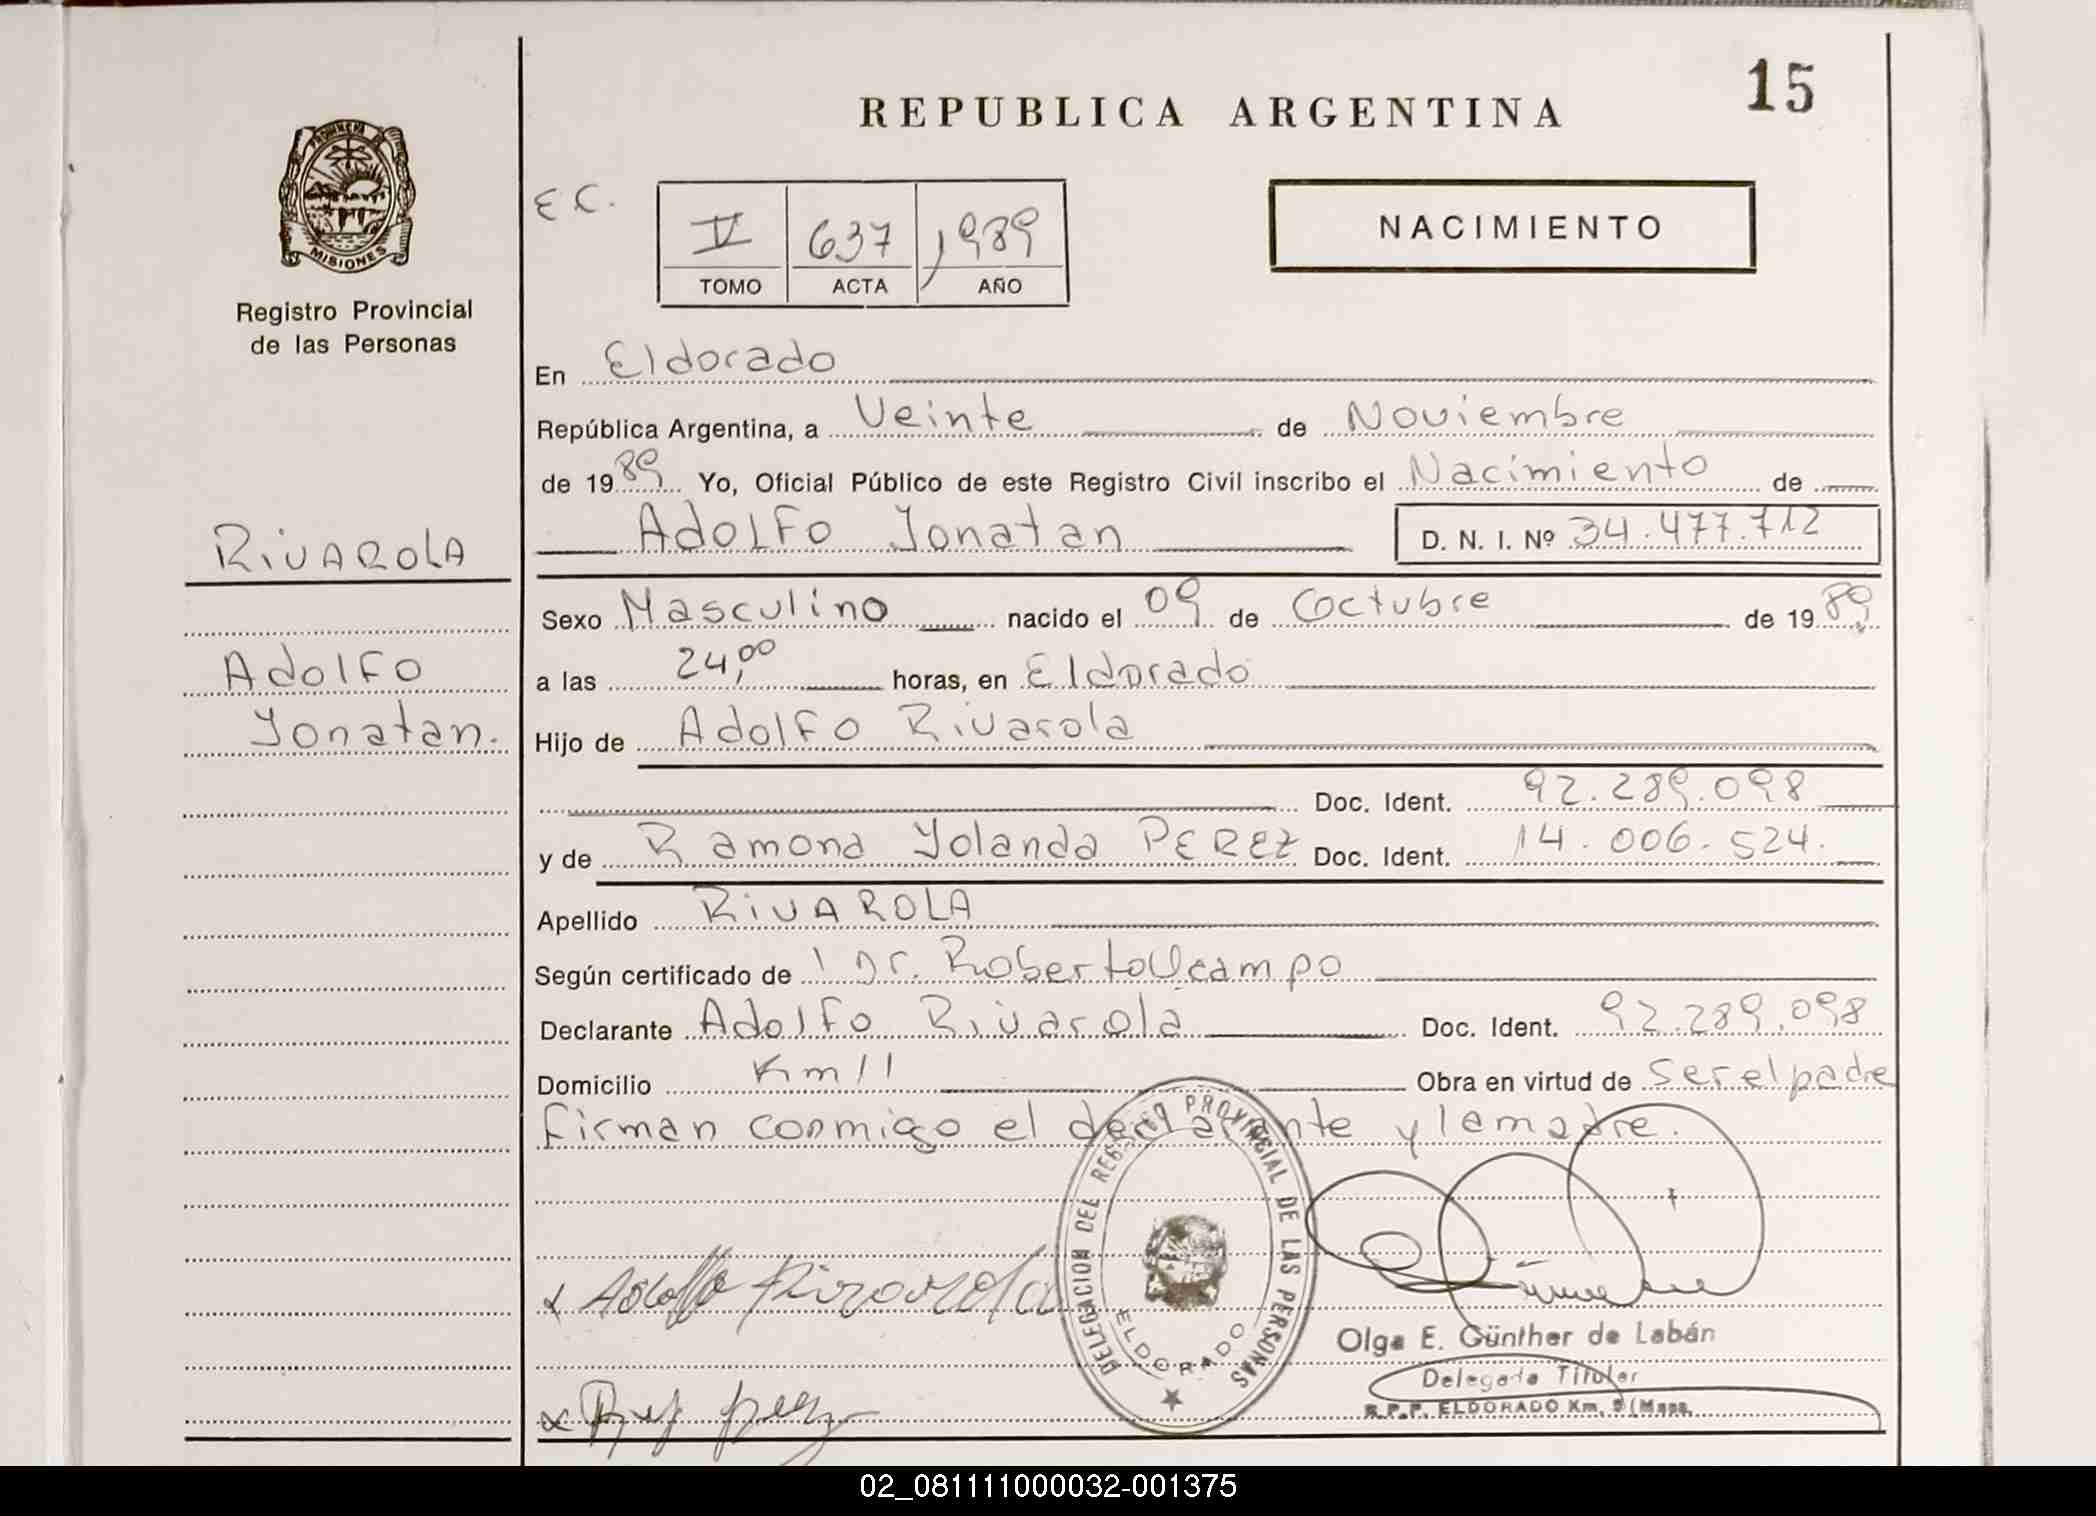 15
REPUBLICA ARGENTINA
PROVINCIA DE
MISIONES
Registro Provincial
de las Personas
E C.
V 637 1989
TOMO ACTA AÑO
NACIMIENTO
En Eldorado
República Argentina, a Veinte de Noviembre
de 1989 Yo, Oficial Público de este Registro Civil inscribo el Nacimiento de
Adolfo Yonatan D. N. I. Nº 34.477.712
RIVAROLA
Adolfo
Yonatan.
Sexo Masculino nacido el 09 de Octubre de 1989
a las 24,00 horas, en Eldorado
Hijo de Adolfo Rivarola
Doc. Ident. 92.289.098
y de Ramona Yolanda PEREZ Doc. Ident. 14.006.524.
Apellido RIVAROLA
Según certificado de Dr. Roberto Ocampo
Declarante Adolfo Rivarola Doc. Ident. 92.289.098
Domicilio Km 11 Obra en virtud de ser el padre
Firman conmigo el declarante y la madre.
DELEGACION DEL REGISTRO PROVINCIAL DE LAS PERSONAS
ELDORADO
Adolfo Rivarola
Olga E. Günther de Labán
Delegada Titular
R.P.P. ELDORADO Km. 9 (Mnes.
02_081111000032-001375